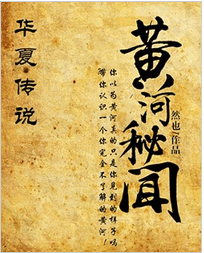 黄河秘闻
然也/作品
你以为黄河真的只是你见到的样子吗
带你认识一个你完全不了解的黄河!
华夏·传说